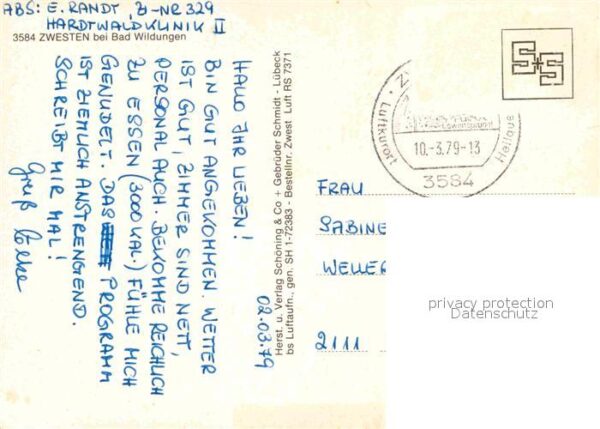 ABS: E. RANDT, Z-NR 329
HARDTWALDKLINIK II
3584 ZWESTEN bei Bad Wildungen
HALLO IHR LIEBEN!
BIN GUT ANGEKOMMEN. WETTER
IST GUT, ZIMMER SIND NETT,
PERSONAL AUCH. BEKOMME REICHLICH
ZU ESSEN (3000 KAL.) FÜHLE MICH
GENUDELT. DAS PROGRAMM
IST ZIEMLICH ANSTRENGEND.
SCHREIBT MIR MAL!
Gruß Elke
02.03.79
Herst. u. Verlag Schöning & Co + Gebrüder Schmidt - Lübeck
bs Luftaufn., gen. SH 1-72383 - Bestellnr. Zwest Luft RS 7371
S+S
Luftkurort
10.-3.79-13
3584
FRAU
SABINE
WELLER
2111
privacy protection
Datenschutz